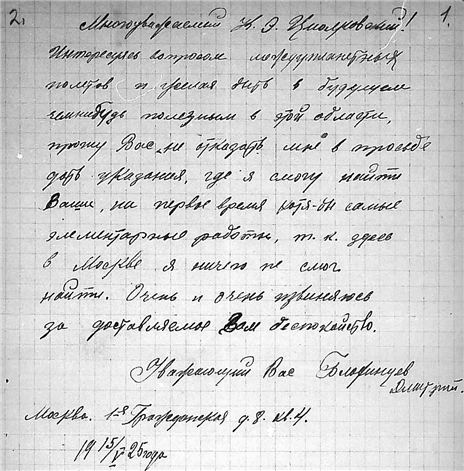 2. 1.
Многоуважаемый К. Э. Циолковский!
Интересуясь вопросом межпланетных
полетов и желая быть в будущем
чемнибудь полезным в этой области,
прошу Вас не отказать мне в просьбе
дать указания, где я смогу найти
Ваши, на первое время хотя-бы самые
элементарные работы, т. к. здесь
в Москве я ничего не смог
найти. Очень и очень извиняюсь
за доставляемое Вам беспокойство.
Уважающий Вас Блохинцев
Дмитрий.
Москва. 1-я Гражданская д. 8. кв. 4.
19 15/V 25 года